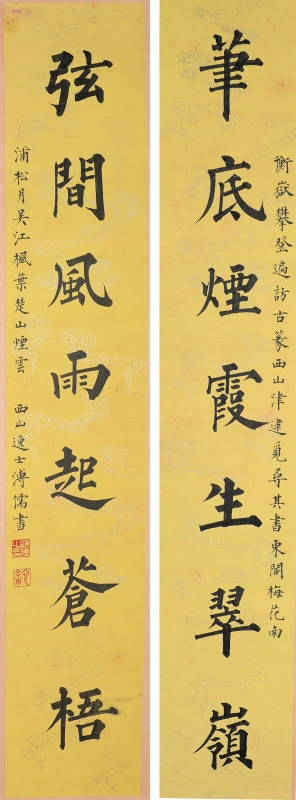 筆底煙霞生翠嶺
衡嶽攀登遍訪古篆西山津逮覓尋其書東閣梅花南
弦間風雨起蒼梧
浦松月吴江楓葉楚山煙雲 西山逸士溥儒書